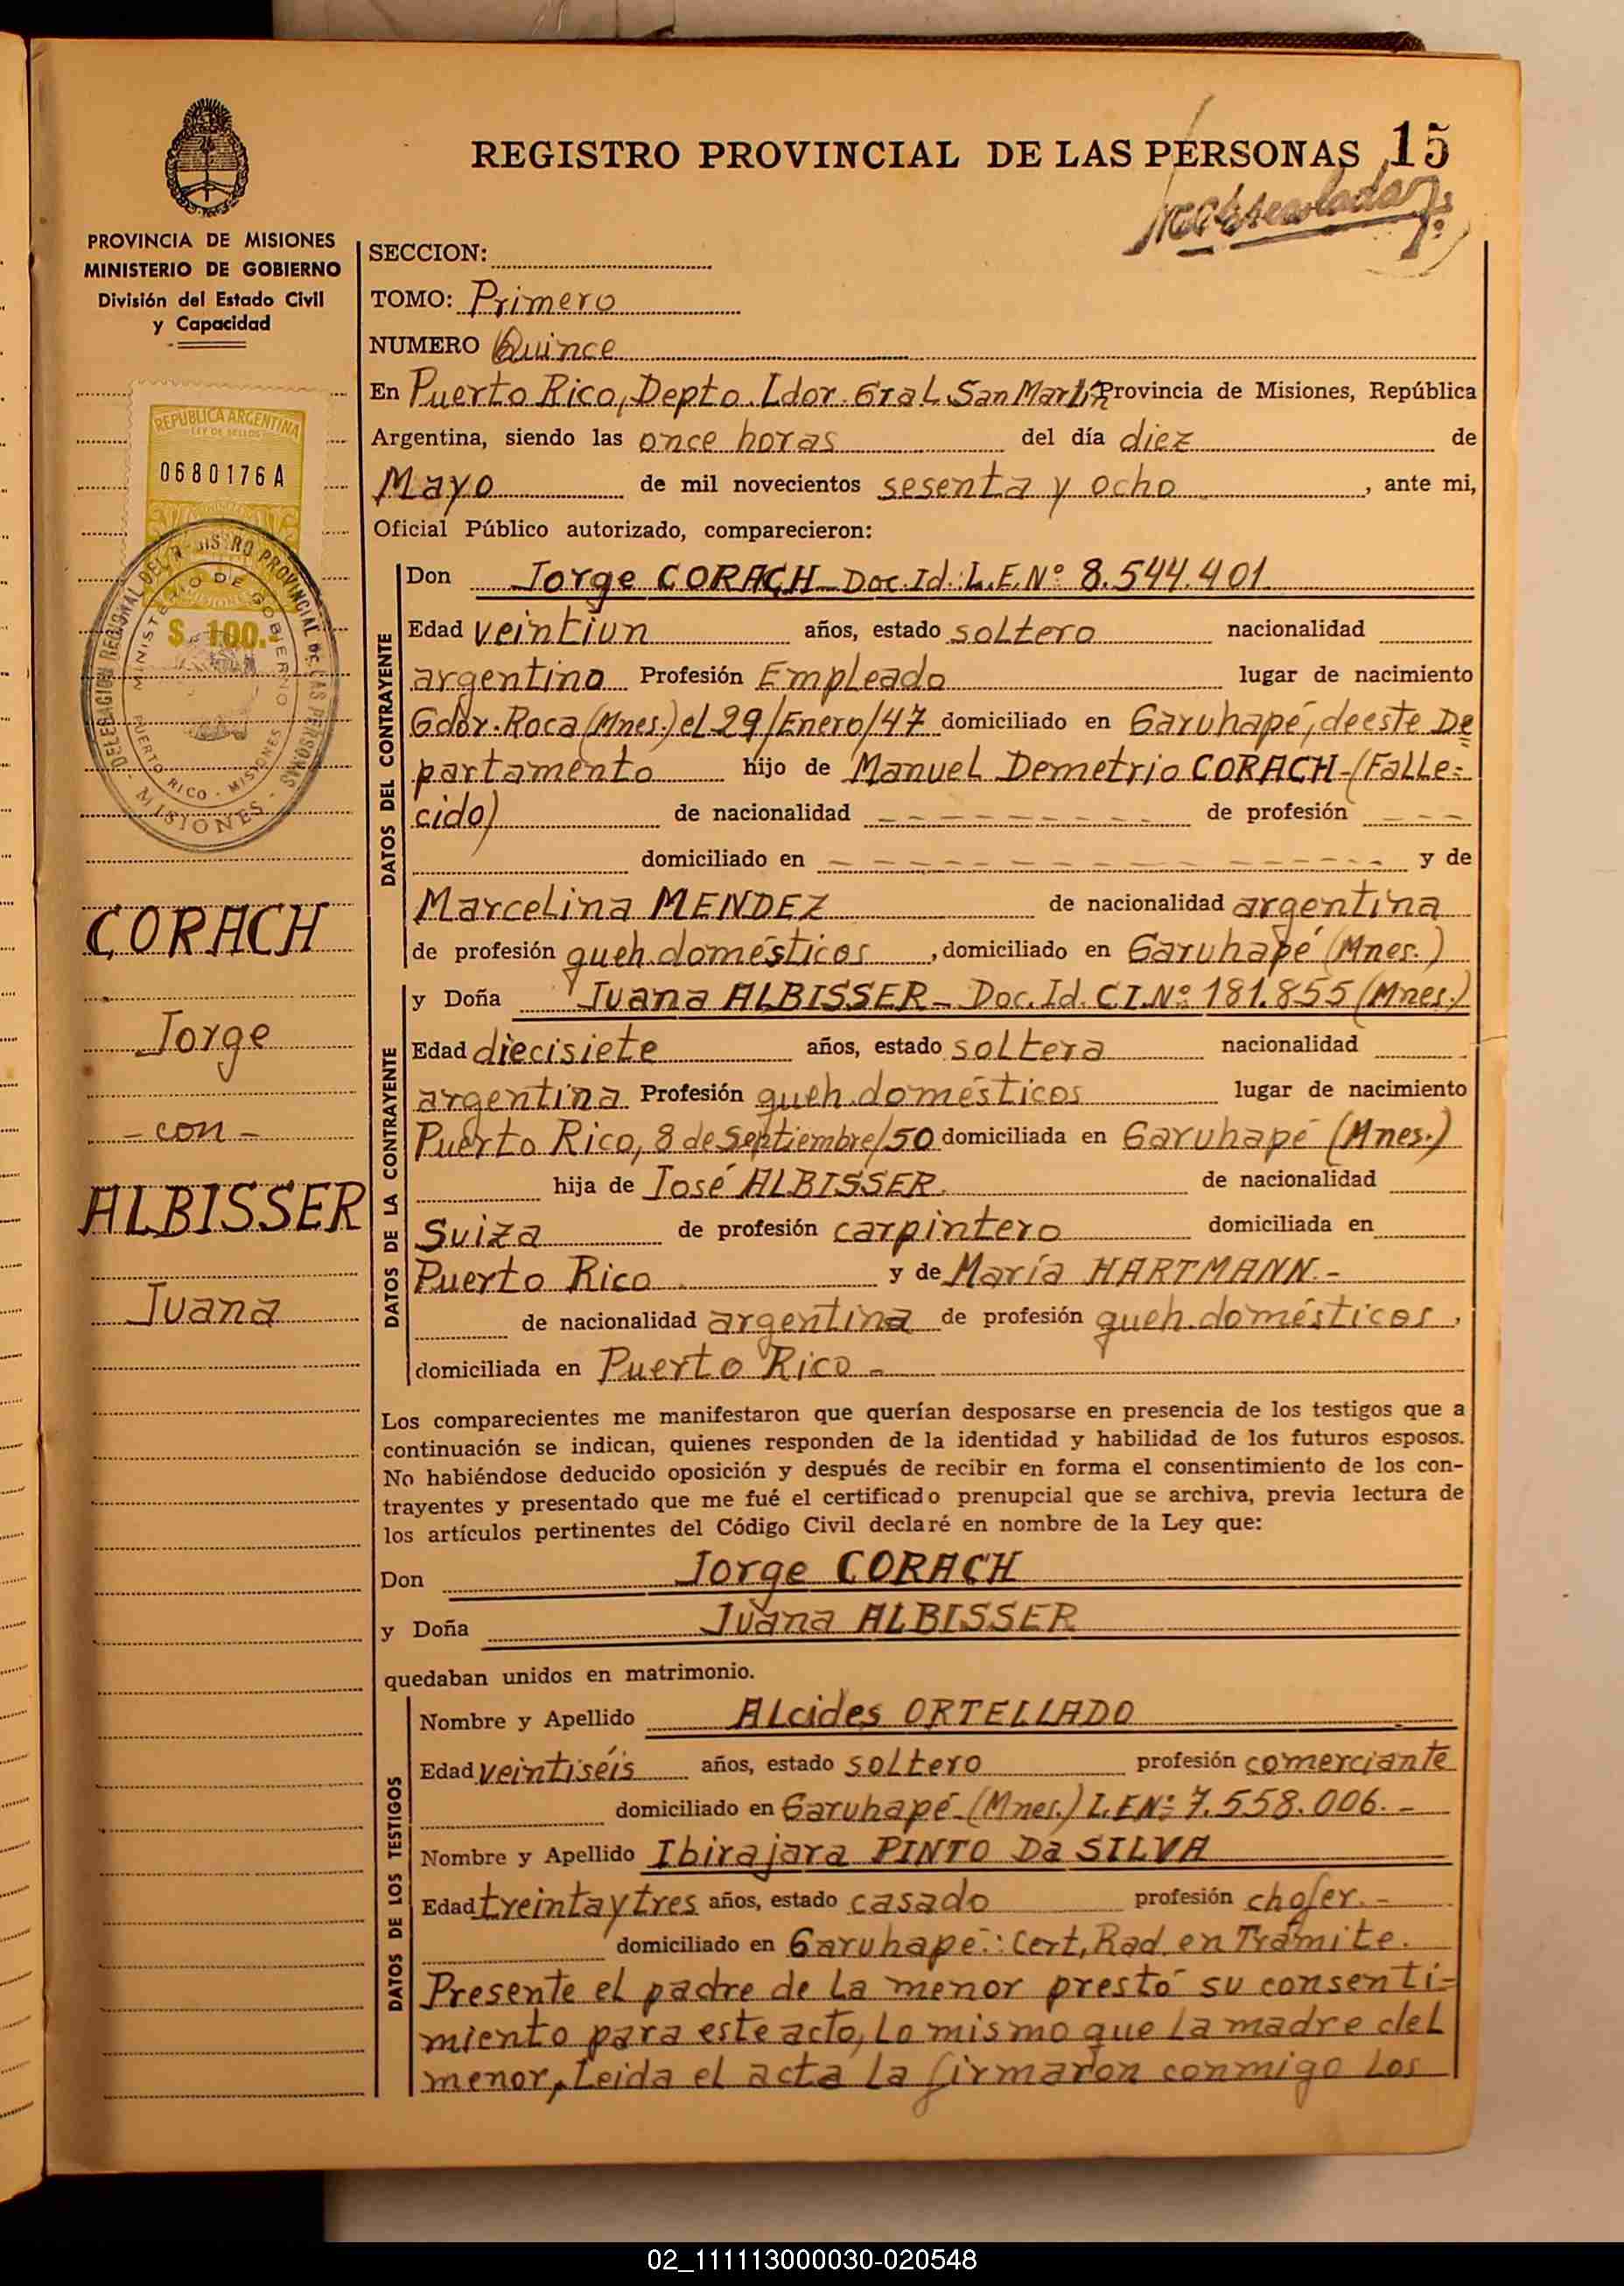 REGISTRO PROVINCIAL DE LAS PERSONAS 15
PROVINCIA DE MISIONES
MINISTERIO DE GOBIERNO
División del Estado Civil
y Capacidad
REPUBLICA ARGENTINA
LEY DE SELLOS
0680176A
$ 100.-
DELEGACION REGIONAL DEL REGISTRO PROVINCIAL DE LAS PERSONAS
- MISIONES -
MINISTERIO DE GOBIERNO
PUERTO RICO - MISIONES
CORACH
Jorge
- con -
ALBISSER
Juana
SECCION:
TOMO: Primero
NUMERO Quince
En Puerto Rico, Depto. Ldor. Gral. San Martín Provincia de Misiones, República
Argentina, siendo las once horas del día diez de
Mayo de mil novecientos sesenta y ocho, ante mi,
Oficial Público autorizado, comparecieron:
DATOS DEL CONTRAYENTE
Don Jorge CORACH - Doc. Id. L.E. Nº 8.544.401
Edad veintiun años, estado soltero nacionalidad
argentino Profesión Empleado lugar de nacimiento
Gdor. Roca (Mnes.) el 29/Enero/47 domiciliado en Garuhapé, de este De=
partamento hijo de Manuel Demetrio CORACH - (Falle=
cido) de nacionalidad - - - - - - - - - de profesión - - -
domiciliado en - - - - - - - - - - - - - - y de
Marcelina MENDEZ de nacionalidad argentina
de profesión queh. domésticos, domiciliado en Garuhapé (Mnes.)
DATOS DE LA CONTRAYENTE
y Doña Juana ALBISSER - Doc. Id. C.I. Nº 181.855 (Mnes.)
Edad diecisiete años, estado soltera nacionalidad
argentina Profesión queh. domésticos lugar de nacimiento
Puerto Rico, 8 de Septiembre/50 domiciliada en Garuhapé (Mnes.)
hija de José ALBISSER. de nacionalidad
Suiza de profesión carpintero domiciliada en
Puerto Rico y de María HARTMANN. -
de nacionalidad argentina de profesión queh. domésticos,
domiciliada en Puerto Rico -
Los comparecientes me manifestaron que querían desposarse en presencia de los testigos que a
continuación se indican, quienes responden de la identidad y habilidad de los futuros esposos.
No habiéndose deducido oposición y después de recibir en forma el consentimiento de los con-
trayentes y presentado que me fué el certificado prenupcial que se archiva, previa lectura de
los artículos pertinentes del Código Civil declaré en nombre de la Ley que:
Don Jorge CORACH
y Doña Juana ALBISSER
quedaban unidos en matrimonio.
DATOS DE LOS TESTIGOS
Nombre y Apellido Alcides ORTELLADO
Edad veintiséis años, estado soltero profesión comerciante
domiciliado en Garuhapé - (Mnes.) L.E Nº 7.558.006. -
Nombre y Apellido Ibirajara PINTO Da SILVA
Edad treinta y tres años, estado casado profesión chofer. -
domiciliado en Garuhapé - : Cert, Rad. en Trámite.
Presente el padre de la menor prestó su consenti=
miento para este acto, Lo mismo que la madre del
menor, Leida el acta la firmaron conmigo los
02_111113000030-020548